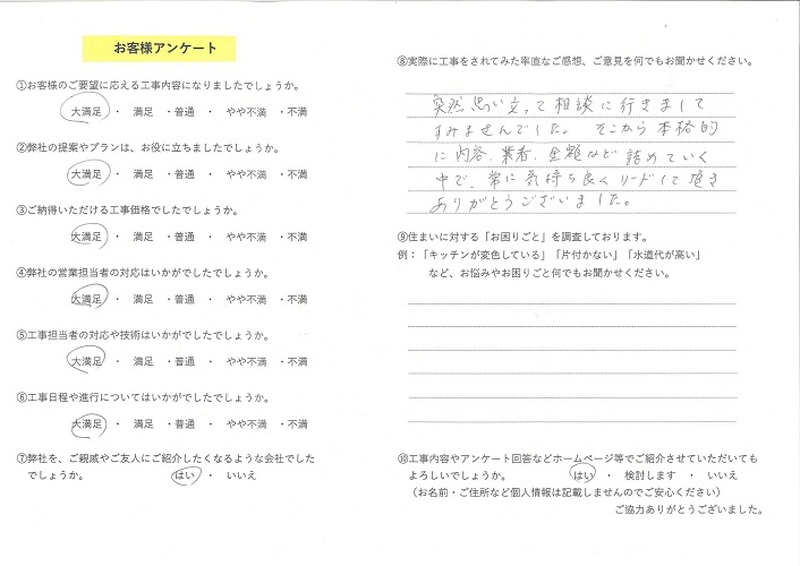 お客様アンケート
①お客様のご要望に応える工事内容になりましたでしょうか。
大満足 ・ 満足 ・普通 ・ やや不満 ・不満
②弊社の提案やプランは、お役に立ちましたでしょうか。
大満足 ・ 満足 ・普通 ・ やや不満 ・不満
③ご納得いただける工事価格でしたでしょうか。
大満足 ・ 満足 ・普通 ・ やや不満 ・不満
④弊社の営業担当者の対応はいかがでしたでしょうか。
大満足 ・ 満足 ・普通 ・ やや不満 ・不満
⑤工事担当者の対応や技術はいかがでしたでしょうか。
大満足 ・ 満足 ・普通 ・ やや不満 ・不満
⑥工事日程や進行についてはいかがでしたでしょうか。
大満足 ・ 満足 ・普通 ・ やや不満 ・不満
⑦弊社を、ご親戚やご友人にご紹介したくなるような会社でした
でしょうか。 はい ・ いいえ
⑧実際に工事をされてみた率直なご感想、ご意見を何でもお聞かせください。
突然思い立って相談に行きまして
すみませんでした。 そこから本格的
に内容、業者、金額など詰めていく
中で、常に気持ち良くリードして頂き
ありがとうございました。
⑨住まいに対する「お困りごと」を調査しております。
例：「キッチンが変色している」「片付かない」「水道代が高い」
など、お悩みやお困りごと何でもお聞かせください。
⑩工事内容やアンケート回答などホームページ等でご紹介させていただいても
よろしいでしょうか。 はい ・ 検討します ・ いいえ
（お名前・ご住所など個人情報は記載しませんのでご安心ください）
ご協力ありがとうございました。